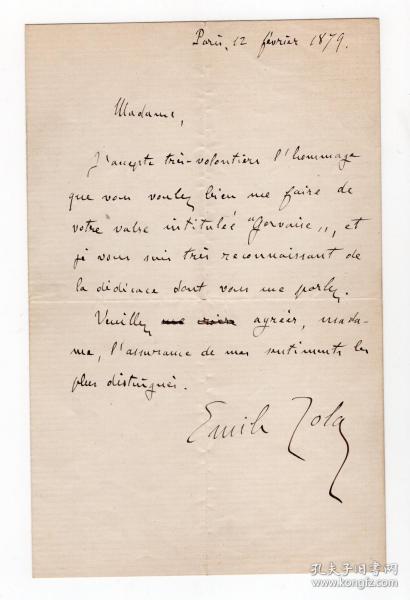 Paris, 12 février 1879.
Madame,
J'accepte très-volontiers l'hommage
que vous voulez bien me faire de
votre valse intitulée "Gervaise", et
je vous suis très reconnaissant de
la dédicace dont vous me parlez.
Veuillez me croire agréer, mada-
me, l'assurance de mes sentiments les
plus distingués.
Emile Zola
孔夫子旧书网